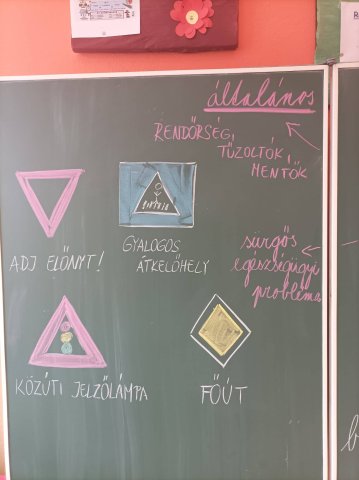 általános
RENDŐRSÉG,
TŰZOLTÓK,
MENTŐK
ADJ ELŐNYT!
GYALOGOS
ÁTKELŐHELY
sürgős
egészségügyi
probléma
KÖZÚTI JELZŐLÁMPA
FŐÚT